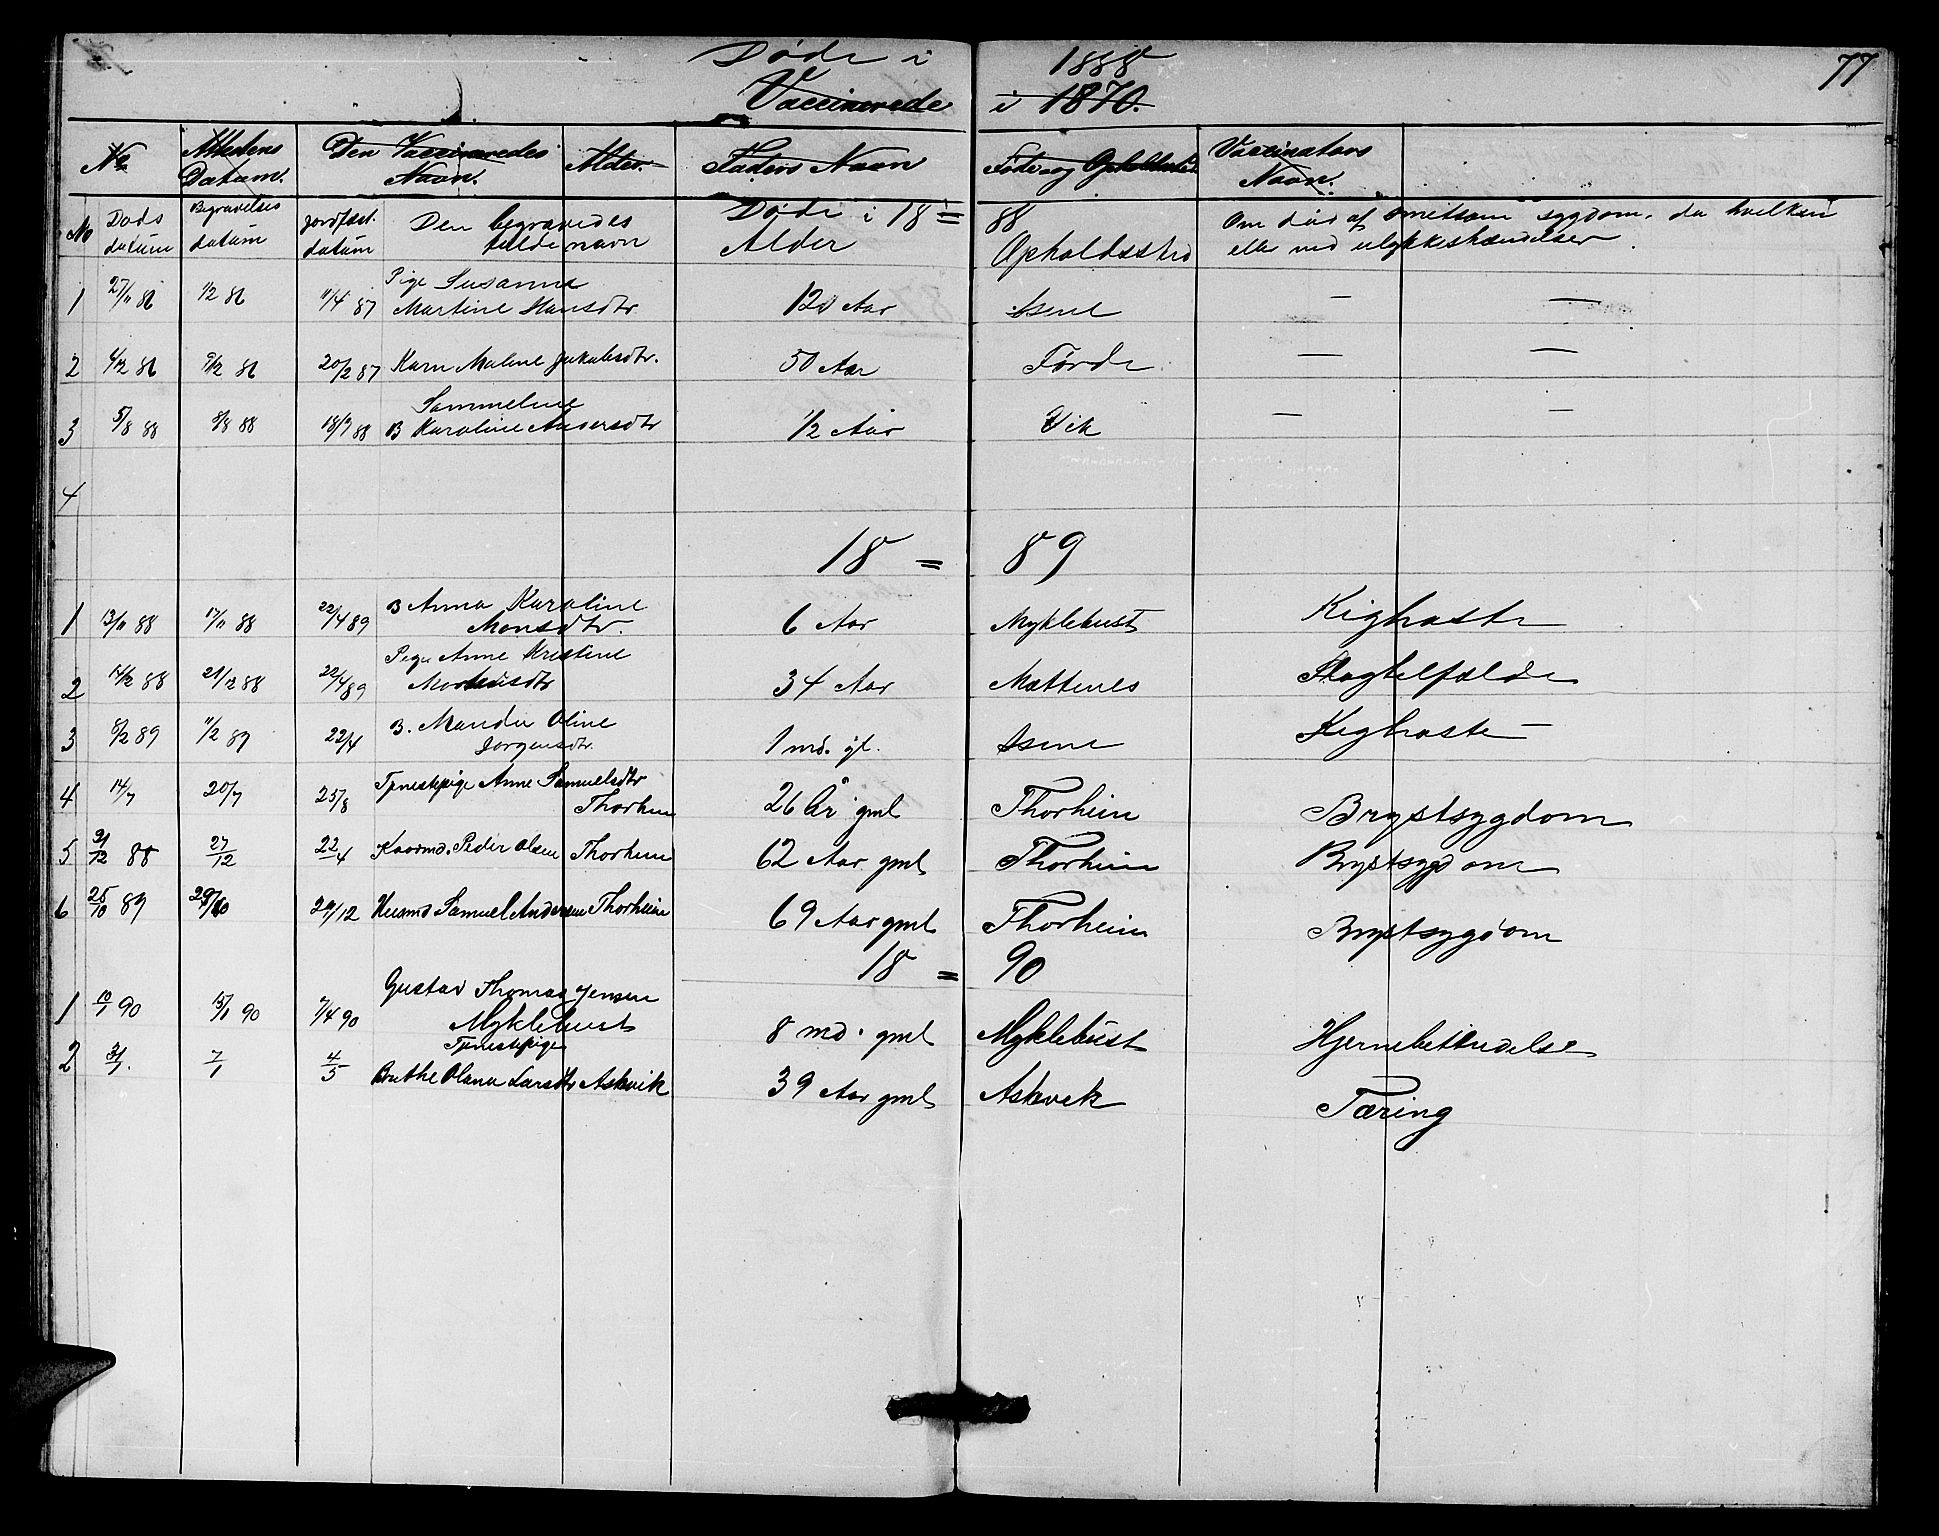 Døde i 1888
Vaccinerede i 1870.
77
No Attestens Datum. Den Vaccineredes Navn. Alder. Faders Navn Føde og Opholdssted Vaccinators Navn.
No Døds datum Begravelses datum Jordfæst. datum Den begravedes fulde navn Døde i 18 = 88 Alder Opholdssted Om død af smitsom sygdom, da hvilken eller ved ulykkeshændelser.
1 27/11 86 1/2 86 11/4 87 Pige Susanne Martine Hansdtr 12 Aar Isene — —
2 4/12 86 9/12 86 20/2 87 Karn Maline Jakobsdtr. 50 Aar Førde — —
3 5/8 88 8/8 88 18/9 88 B Sammeline Karoline Andersdtr 1/2 Aar Vik — —
4
18 = 89
1 13/11 88 17/11 88 22/4 89 B Anna Karoline Monsdtr. 6 Aar Myklebust Kighoste
2 14/12 88 21/12 88 22/4 89 Pige Anne Kristine 34 Aar Mættenes Slagtelfælde
3 8/2 89 11/2 89 22/4 B. Mandu Oline Jørgensdtr. 1 md. gl. Isene Kighoste
4 14/7 20/7 25/8 Tjenestepige Anne Samuelsdtr Thorheim 26 År gml Thorheim Brystsygdom
5 21/12 88 27/12 22/4 Kaarmd. Peder Olsen Thorheim 62 Aar gml Thorheim Brystsygdom
6 25/10 89 29/10 29/12 Husmd Samuel Andersen Thorheim 69 Aar gml Thorheim Brystsygdom
18 = 90
1 10/1 90 15/1 90 7/4 90 Gustav Thomas Jensen Myklebust 8 md. gml Myklebust Hjernebetændelse
2 31/1. 7/1 4/5 Tjenestepige Brethe Olana Larsdtr Askvik 39 Aar gml Askvik Tæring